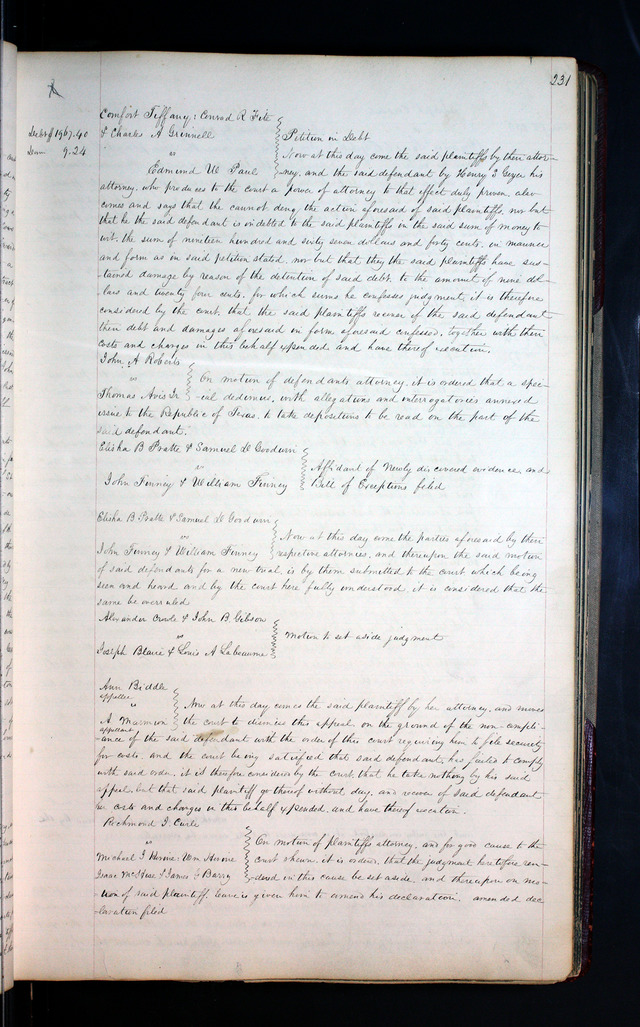 231
Comfort Tiffany: Conrad R Fite
Debt $1967.40
& Charles A Grinnell
Petition in Debt
9.24
vs
Now at this day come the said plaintiffs by their attor-
Edmund W Paul
ney, and the said defendant by Henry S Geyer his
attorney, who produces to the court a power of attorney to that effect duly proven, also
comes and says that he cannot deny the action aforesaid of said plaintiffs, nor but
that he the said defendant is indebted to the said plaintiffs in the said sum of money to
wit: the sum of nineteen hundred and sixty seven dollars and forty cents, in manner
and form as in said petition stated, nor but that they the said plaintiffs have sus-
-tained damage by reason of the detention of said debt, to the amount of nine dol-
-lars and twenty four cents, for which sums he confesses judgment, it is therefore
considered by the court, that the said plaintiffs recover of the said defendant
their debt and damages aforesaid in form aforesaid confessed, together with their
costs and charges in this behalf expended and have thereof execution.
John A Roberts
vs
On motion of defendants attorney, it is ordered that a spe-
Thomas Avis Jr
-cial dedimus, with allegations and interrogatories annexed
issue to the Republic of Texas, to take depositions to be read on the part of the
said defendant.
Elisha B Pratte & Samuel D Goodwin
vs
Affidavit of Newly discovered evidence, and
John Finney & William Finney
Bill of Exceptions filed
Elisha B Pratte & Samuel D Goodwin
vs
Now at this day come the parties aforesaid by their
John Finney & William Finney
respective attornies, and thereupon the said motion
of said defendants for a new trial, is by them submitted to the court which being
seen and heard and by the court here fully understood, it is considered that the
same be overruled
Alexander & John B. Gibson
vs
Motion to set aside judgment
Joseph Blaire & Louis A Labeaume
Ann Biddle
appellee
vs
Now at this day comes the said plaintiff by her attorney, and moves
A Marmion
the court to dismiss this appeal, on the ground of the non-compli-
appellant
-ance of the said defendant with the order of this court requiring him to file security
for costs, and the court being satisfied that said defendant, has failed to comply
with said order, it is therefore considered by the court that he take nothing by his said
appeal, but that said plaintiff go thereof without day, and recover of said defendant
her costs and charges in this behalf expended, and have thereof execution.
Richmond J. Curle
vs
On motion of plaintiffs attorney, and for good cause to the
Michael J : Wm
court shewn, it is ordered, that the judgment heretofore ren-
Isaac McHose & James E Barry
-dered in this cause be set aside, and thereupon on mo-
-tion of said plaintiff, leave is given him to amend his declaration, amended dec
-laration filed